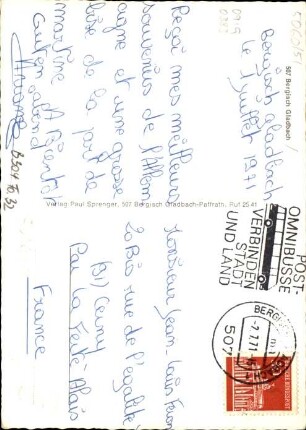 507 Bergisch Gladbach
Bergisch Gladbach
le 1 juillet 1971
Reçois mes meilleurs
souvenirs de l'Allem
agne et une grosse
bise de la part de
martine A Bientôt
Guten abend
Verlag Paul Sprenger, 507 Bergisch Gladbach-Paffrath, Ruf 2541
POST-
OMNIBUSSE
VERBINDEN
STADT
UND LAND
507
Monsieur Jean-Luis
20 Bis rue de l'égalité
91) Cerny
Par La Ferté Alais
France